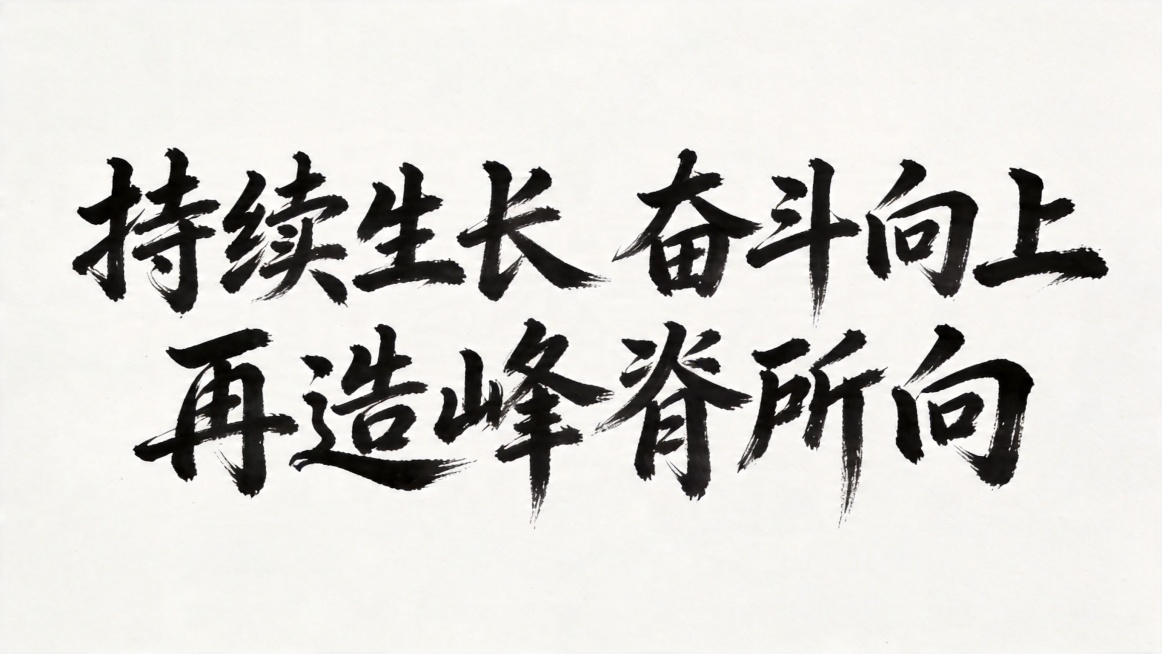 持续生长 奋斗向上
再造峰脊所向